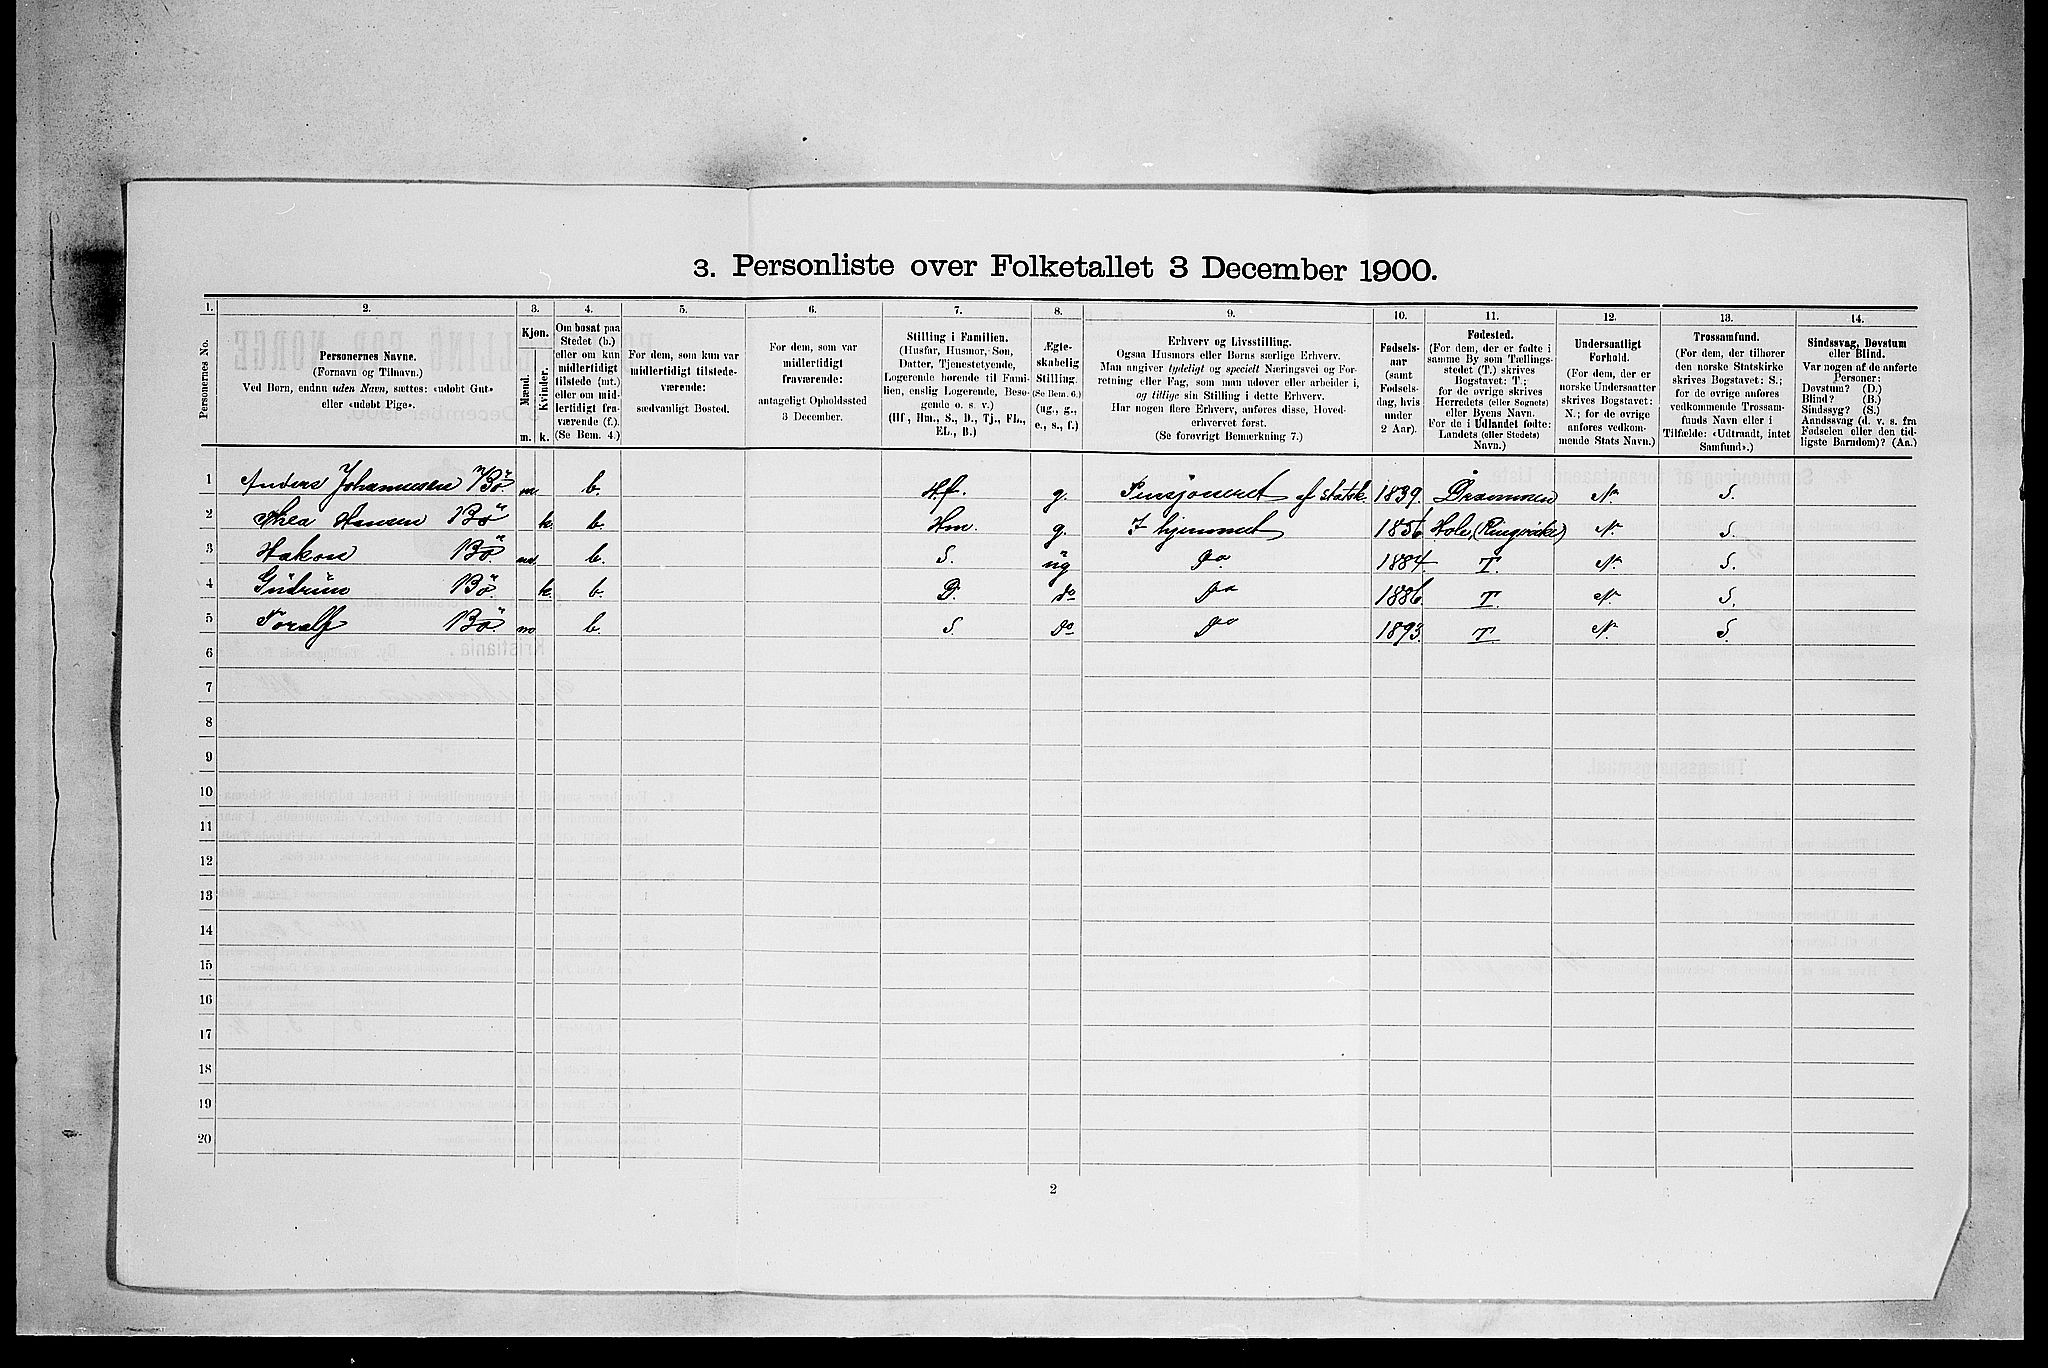 3. Personliste over Folketallet 3 December 1900.
1. 2. 3. 4. 5. 6. 7. 8. 9. 10. 11. 12. 13. 14.
Personernes No.
Personernes Navne.
(Fornavn og Tilnavn.)
Ved Børn, endnu uden Navn, sættes: «udøbt Gut»
eller «udøbt Pige».
Kjøn.
Mænd.
Kvinder.
m. k.
Om bosat paa
Stedet (b.)
eller om kun
midlertidigt
tilstede (mt.)
eller om mid-
lertidigt fra-
værende (f.).
(Se Bem. 4.)
For dem, som kun var
midlertidigt tilstede-
værende:
sædvanligt Bosted.
For dem, som var
midlertidigt
fraværende:
antageligt Opholdssted
3 December.
Stilling i Familien.
(Husfar, Husmor, Søn,
Datter, Tjenestetyende,
Logerende hørende til Fami-
lien, enslig Logerende, Besø-
gende o. s. v.)
(Hf., Hm., S., D., Tj., FL.,
EL., B.)
Ægte-
skabelig
Stilling.
(Se Bem. 6.)
(ug., g.,
e., s., f.)
Erhverv og Livsstilling.
Ogsaa Husmors eller Børns særlige Erhverv.
Man angiver tydeligt og specielt Næringsvei og For-
retning eller Fag, som man udøver eller arbeider i,
og tillige sin Stilling i dette Erhverv.
Har nogen flere Erhverv, anføres disse, Hoved-
erhvervet først.
(Se forøvrigt Bemærkning 7.)
Fødsels-
aar
(samt
Fødsels-
dag, hvis
under
2 Aar).
Fødested.
(For dem, der er fødte i
samme By som Tællings-
stedet (T.) skrives
Bogstavet: T.;
for de øvrige skrives
Herredets (eller Sognets)
eller Byens Navn.
For de i Udlandet fødte:
Landets (eller Stedets)
Navn.)
Undersaatligt
Forhold.
(For dem, der er
norske Undersaatter
skrives Bogstavet:
N.; for de øvrige
anføres vedkom-
mende Stats Navn.)
Trossamfund.
(For dem, der tilhører
den norske Statskirke
skrives Bogstavet: S.;
for de øvrige anføres
vedkommende Trossam-
funds Navn eller i
Tilfælde: «Udtraadt, intet
Samfund».)
Sindssvag, Døvstum
eller Blind.
Var nogen af de anførte
Personer:
Døvstum? (D.)
Blind? (B.)
Sindssyg? (S.)
Aandssvag (d. v. s. fra
Fødselen eller den tid-
ligste Barndom)? (Aa.)
1 Anders Johannesen Bö. m. b. Hf. g. Pensjoneret af statsk. 1839. Drammen N. S.
2 Thea Hansen Bö k. b. Hm g. I hjemmet 1856 Hole, (Ringerike) N. S.
3 Hakon Bö. m b. S. ug Do. 1884. T. N. S.
4 Gudrun Bö. k. b. D. do Do 1886. T. N. S.
5 Toralf Bö. m b. S. do Do 1893. T. N. S.
6
7
8
9
10
11
12
13
14
15
16
17
18
19
20
2